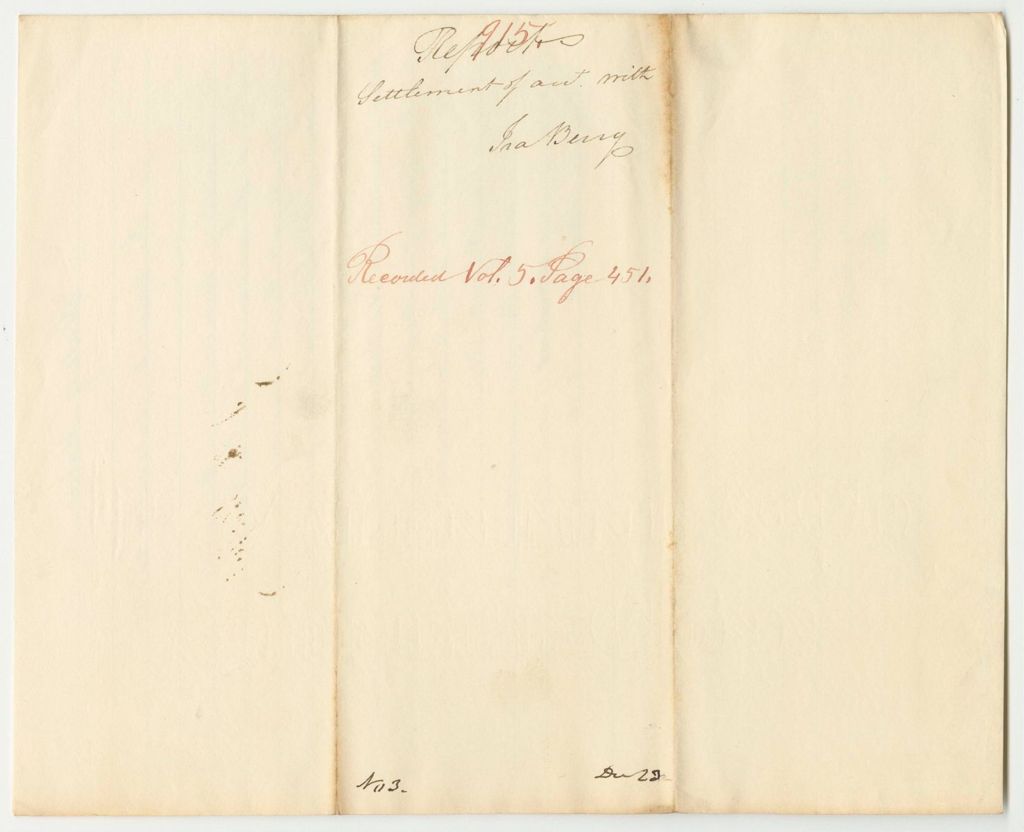 215
Report
Settlement of act. with
Ira Berry
Recorded Vol. 5. Page 451.
No 3.
Dec 23